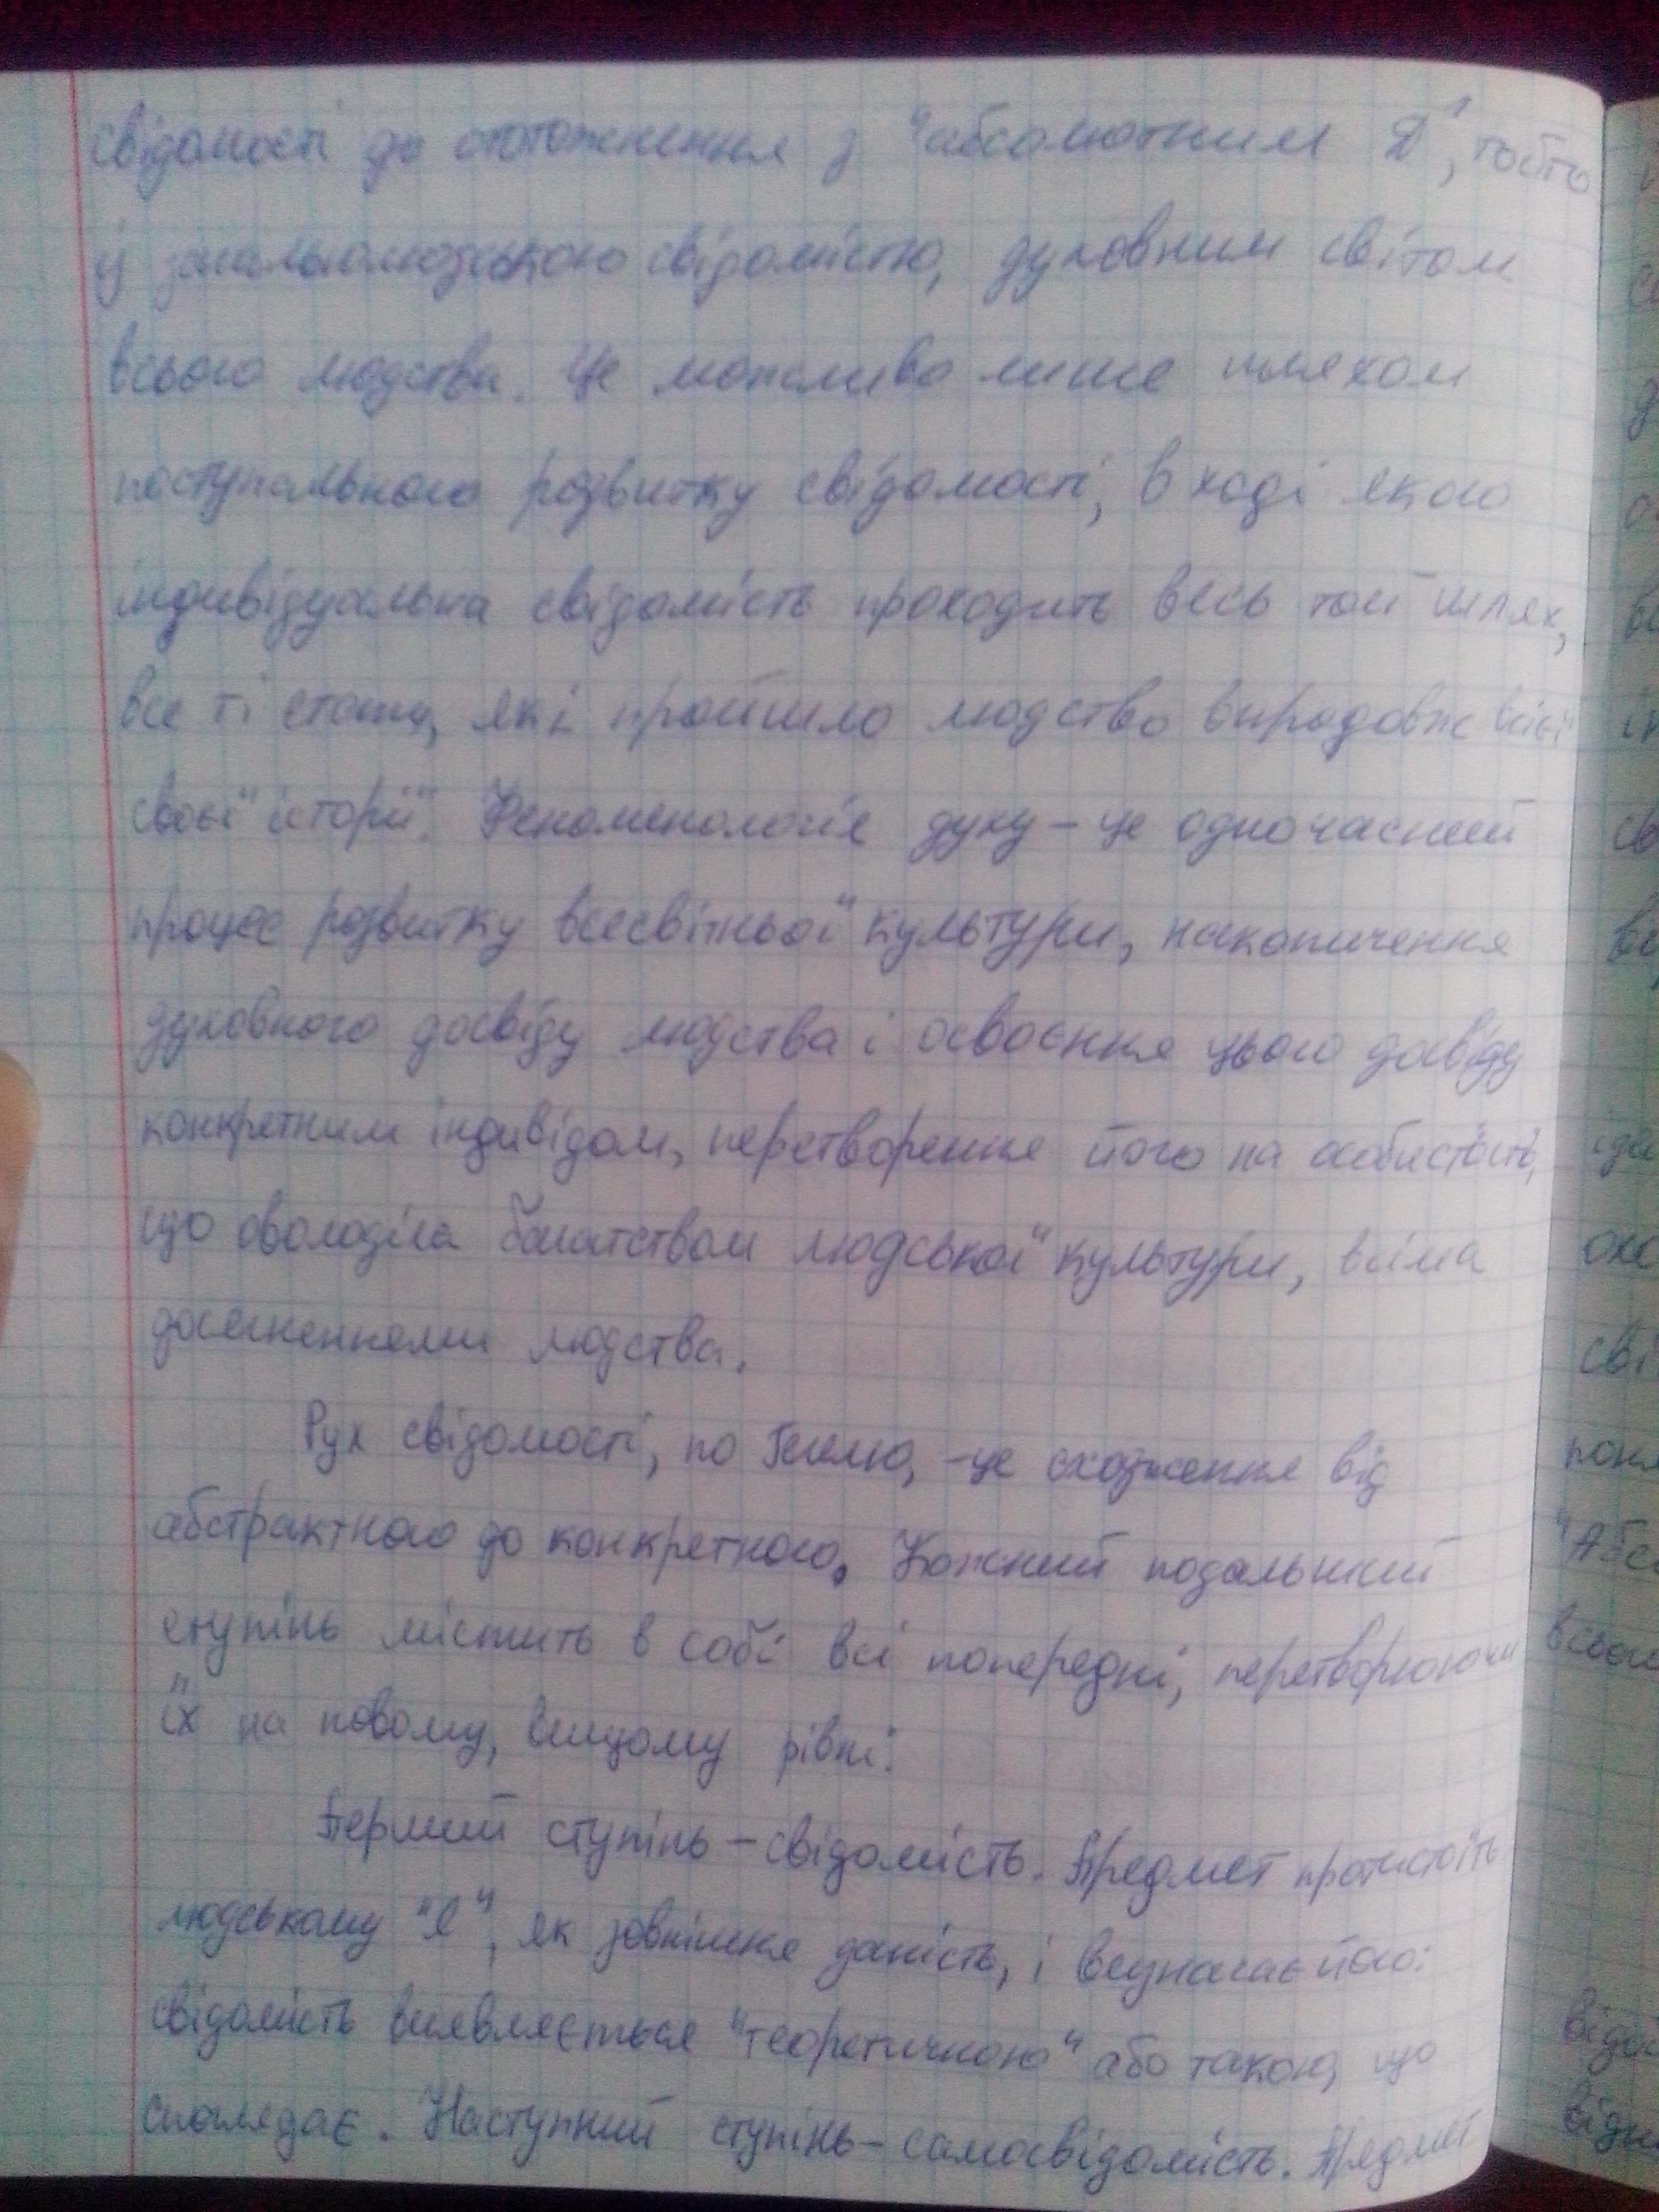 свідомості до ототожнення з "абсолютним Я", тобто
із загальнолюдською свідомістю, духовним світом
всього людства. Це можливо лише шляхом
поступального розвитку свідомості, в ході якого
індивідуальна свідомість проходить весь той шлях,
все ті етапи, які пройшло людство впродовж всієї
своєї історії. Феноменологія духу – це одночасний
процес розвитку всесвітньої культури, накопичення
духовного досвіду людства і освоєння цього досвіду
конкретним індивідом, перетворення його на особистість,
що оволоділа багатством людської культури, всіма
досягненнями людства.
Рух свідомості, по Гегелю, - це сходження від
абстрактного до конкретного. Кожний подальший
ступінь містить в собі всі попередні, перетворюючи
їх на новому, вищому рівні.
Перший ступінь – свідомість. Предмет протистоїть
людському "Я", як зовнішня даність, і визначає його:
свідомість виявляється "теоретичною" або такою, що
споглядає. Наступний ступінь – самосвідомість. Предмет